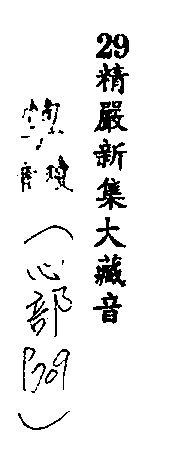 29精嚴新集大藏音
（心部P309）